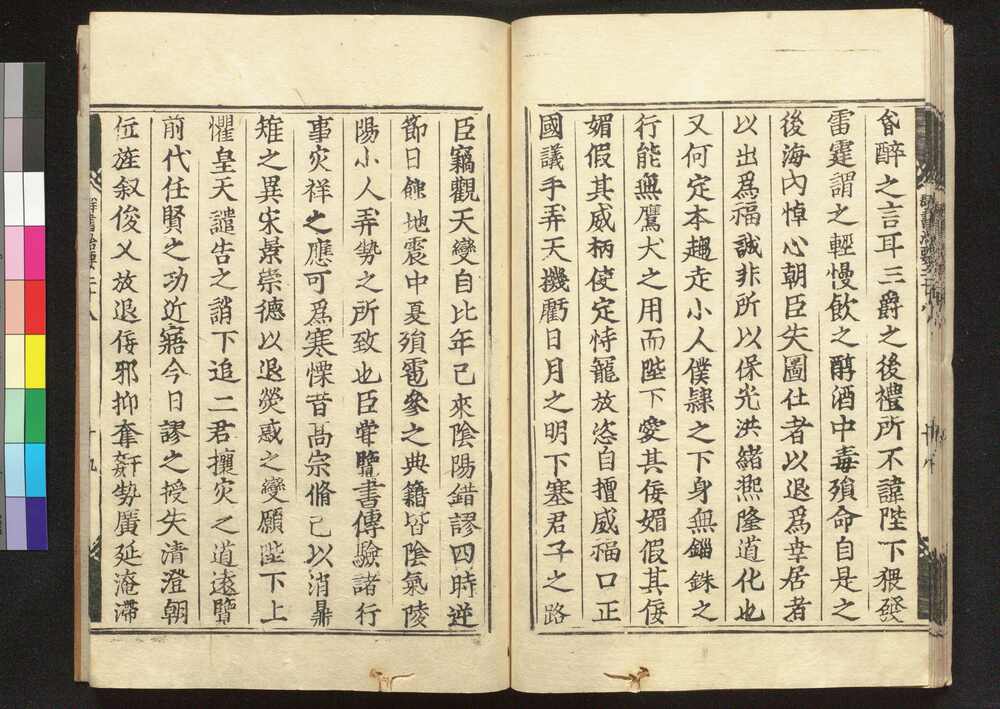 昏醉之言耳三爵之後禮所不諱陛下猥發
雷霆謂之輕慢飲之醇酒中毒殞命自是之
後海內悼心朝臣失圖仕者以退爲幸居者
以出爲福誠非所以保光洪緒熙隆道化也
又何定本趨走小人僕隷之下身無錙銖之
行能無鷹犬之用而陛下愛其佞媚假其佞
媚假其威柄使定恃寵放恣自擅威福口正
國議手弄天機虧日月之明下塞君子之路
臣竊觀天變自比年已來陰陽錯謬四時逆
節日蝕地震中夏殞雹參之典籍皆陰氣陵
陽小人弄勢之所致也臣甞覽書傳驗諸行
事灾祥之應可爲寒慄昔高宗脩己以消鼎
雉之異宋景崇德以退熒惑之變願陛下上
懼皇天譴告之誚下追二君攘灾之道遠覽
前代任賢之功近寤今日謬之授失清澄朝
位旌叙俊乂放退佞邪抑奪姧勢廣延淹滯